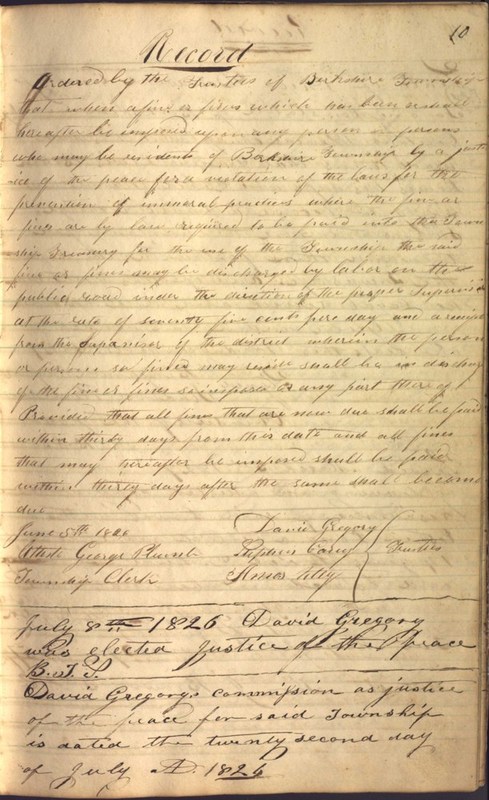 10
Record
Ordered by the Trustees of Berkshire Township
that when a fine or fines which has been or shall
hereafter be imposed upon any person or persons
who may be residents of Berkshire Township by a just
ice of the peace for a violation of the laws for the
prevention of immoral practices where the fine or
fines are by law required to be paid into the Town
ship Treasury for the use of the Township the said
fine or fines may be discharged by labor on the
public road under the direction of the proper Supervisor
at the rate of seventy five cents pere day and a
from the Supervisor of the district wherein the person
or persons so fined may reside shall be a discharge
of the fine or fines so imposed or any part thereof
Provided that all fines that are now due shall be paid
within thirty days from this date and all fines
that may hereafter be imposed shall be paid
within thirty days after the same shall become
due
June 5th 1826 David Gregory
Attest George Stephen Carey Trustees
Township Clerk
July 8th 1826 David Gregory
was elected Justice of the peace
B. T. S.
David Gregorys commission as justice
of the peace for said Township
is dated the twenty second day
of July AD. 1826